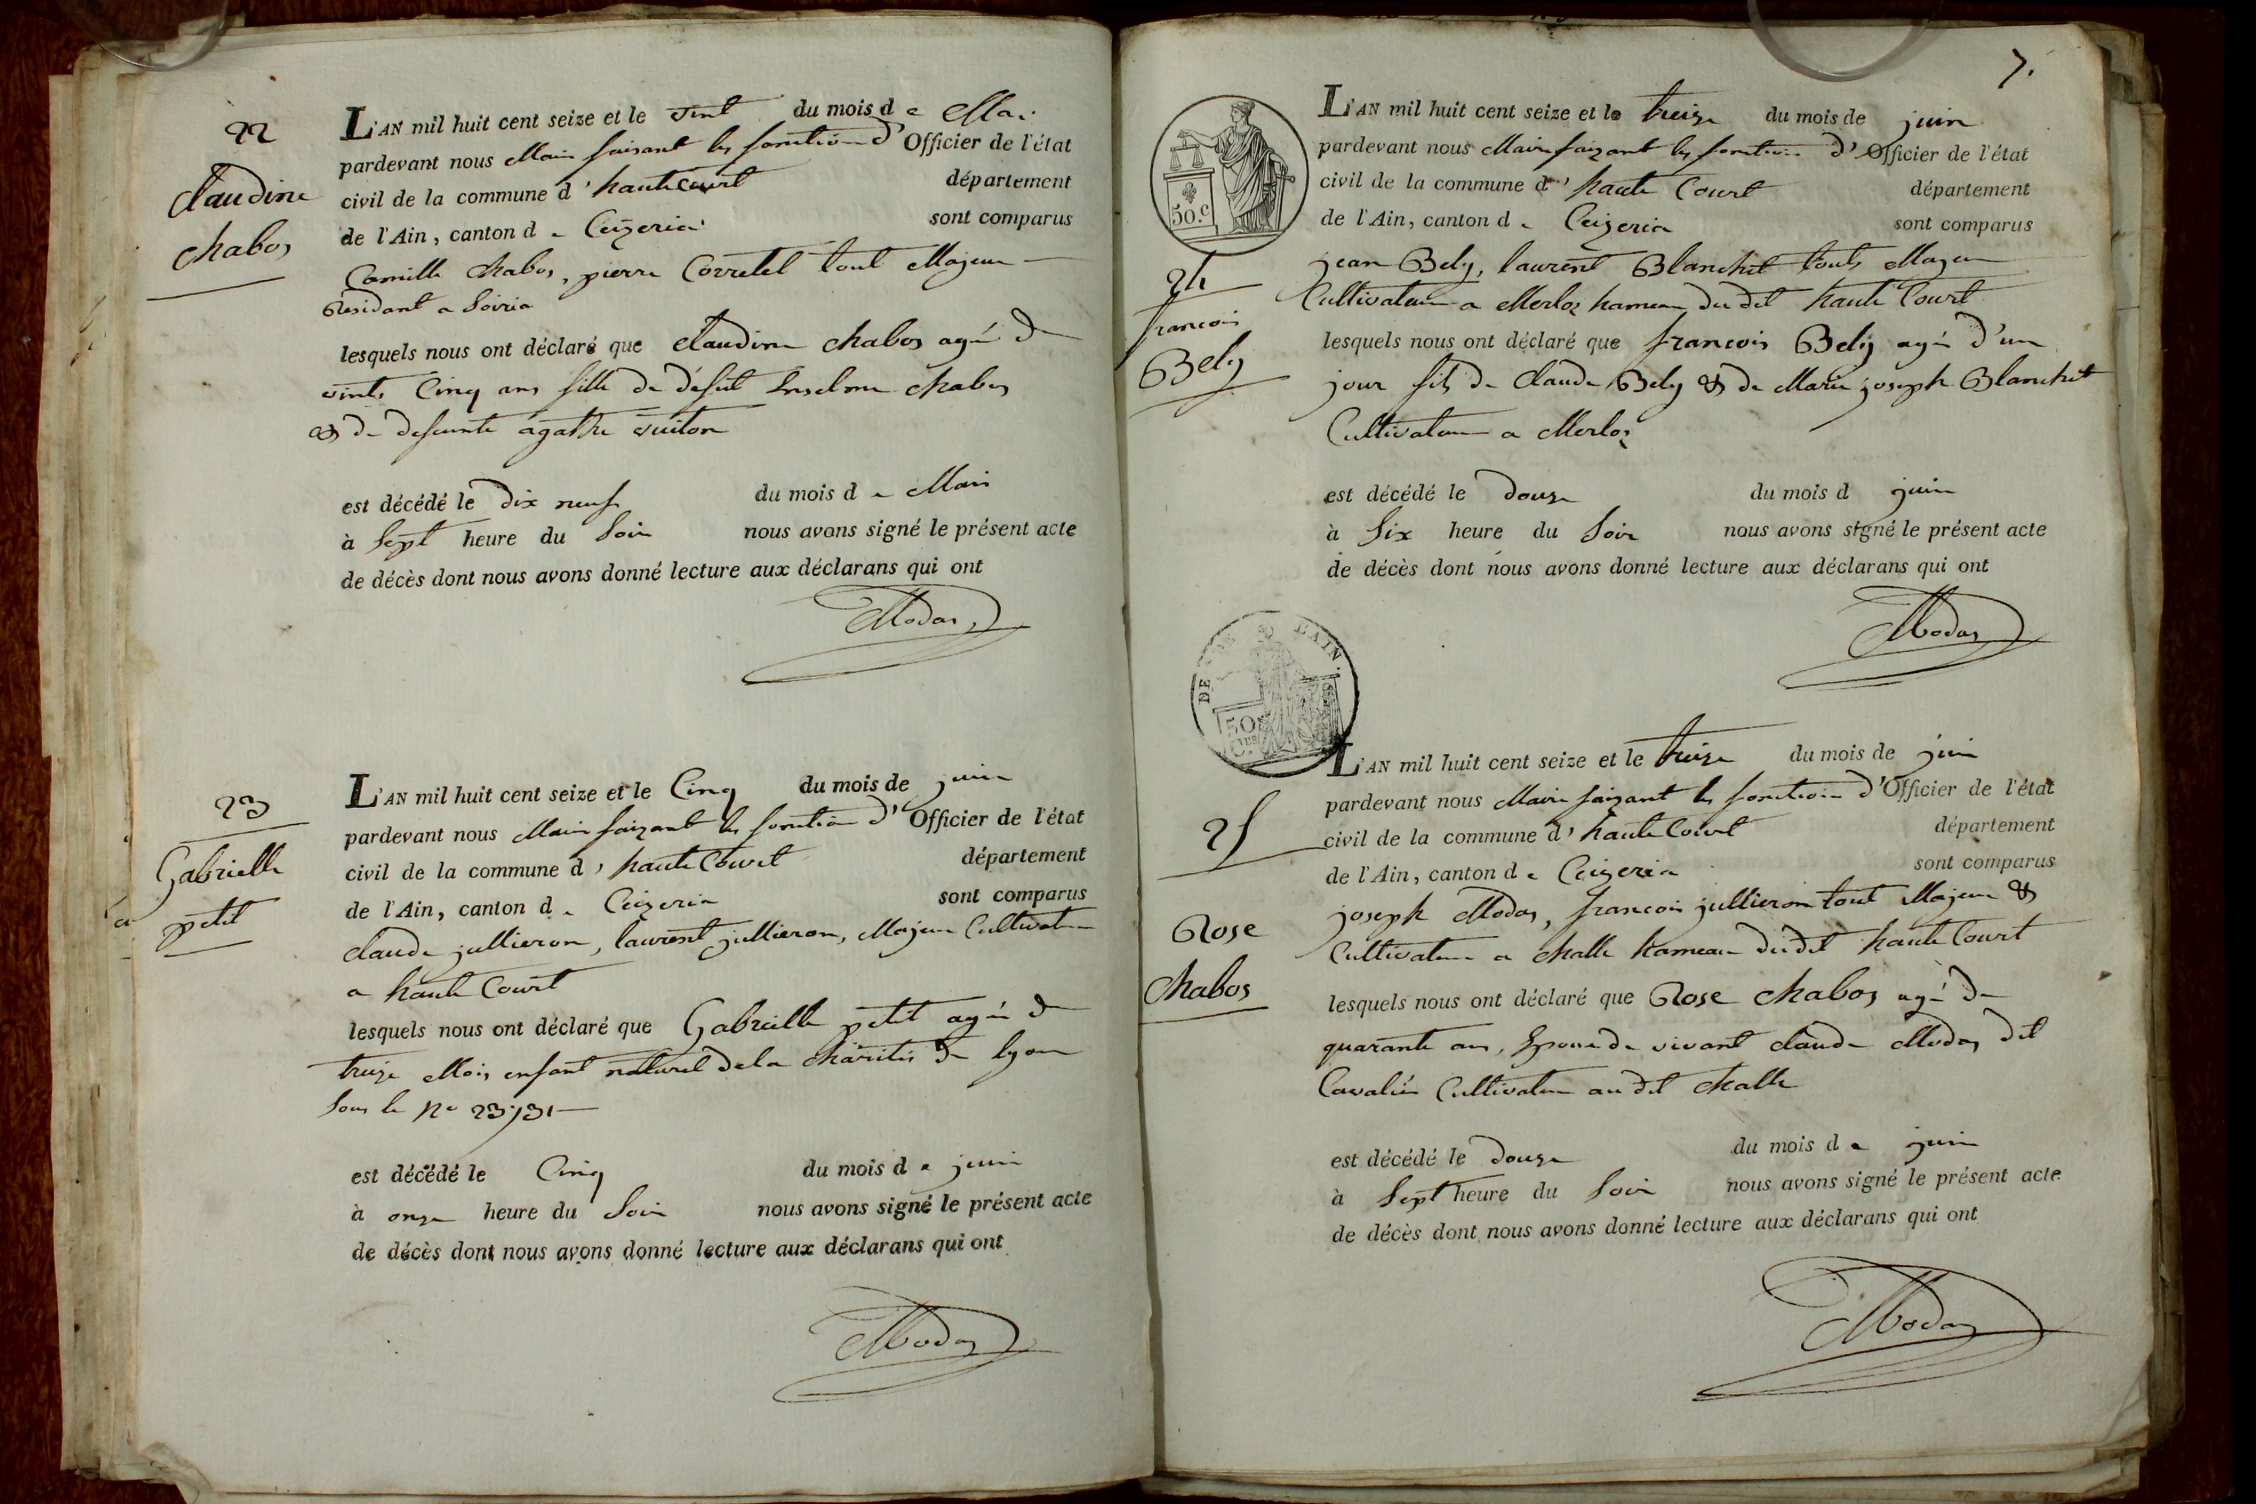 22
Claudine
chabos
L'AN mil huit cent seize et le vint du mois de Mai
pardevant nous Maire faisant les fonction d'Officier de l'état
civil de la commune d'hautecourt département
de l'Ain, canton de Ceizeria sont comparus
Camille Chabos, pierre Corretel tout Majeur
Residant a Soiria
lesquels nous ont déclaré que Claudine chabos agée de
vints Cinq ans fille de defunt chabos
& de defunte agathe
est décédé le dix neuf du mois de Mais
à Sept heure du Soir nous avons signé le présent acte
de décès dont nous avons donné lecture aux déclarans qui ont
Modas
23
Gabrielle
petit
L'AN mil huit cent seize et le Cinq du mois de juin
pardevant nous Maire faizant les fonction d'Officier de l'état
civil de la commune d'haute Court département
de l'Ain, canton de Ceizeria sont comparus
claude jullieron, laurent jullieron, Majeur Cultivateur
a haute Court
lesquels nous ont déclaré que Gabrielle petit agée de
treize Mois enfant naturel de la charités de lyon
Sous le No
est décédé le Cinq du mois de juin
à onze heure du Soir nous avons signé le présent acte
de décès dont nous avons donné lecture aux déclarans qui ont
Modas
7.
50.c
24
francois
Bely
L'AN mil huit cent seize et le treize du mois de juin
pardevant nous Maire faizant les fonction d'Officier de l'état
civil de la commune d'haute Court département
de l'Ain, canton de Ceizeria sont comparus
jean Bely, laurent Blanchet touts Majeur
Cultivateur a Merloz hameau du dit haute Court
lesquels nous ont déclaré que francois Bely agé d'un
jour fils de Claude Bely & de Marie joseph Blanchet
Cultivateur a Merloz
est décédé le douze du mois d juin
à Six heure du Soir nous avons signé le présent acte
de décès dont nous avons donné lecture aux déclarans qui ont
Modas
50
25
Rose
Chabos
L'AN mil huit cent seize et le treize du mois de juin
pardevant nous Maire faizant les fonction d'Officier de l'état
civil de la commune d'haute Court département
de l'Ain, canton de Ceizeria sont comparus
joseph Modas, francois jullieron tout Majeur &
Cultivateur a challe hameau du dit haute Court
lesquels nous ont déclaré que Rose chabos agé de
quarante ans, Epouse de vivant claude Modas dit
Cavalié Cultivateur au dit challe
est décédé le douze du mois de juin
à Sept heure du Soir nous avons signé le présent acte
de décès dont nous avons donné lecture aux déclarans qui ont
Modas